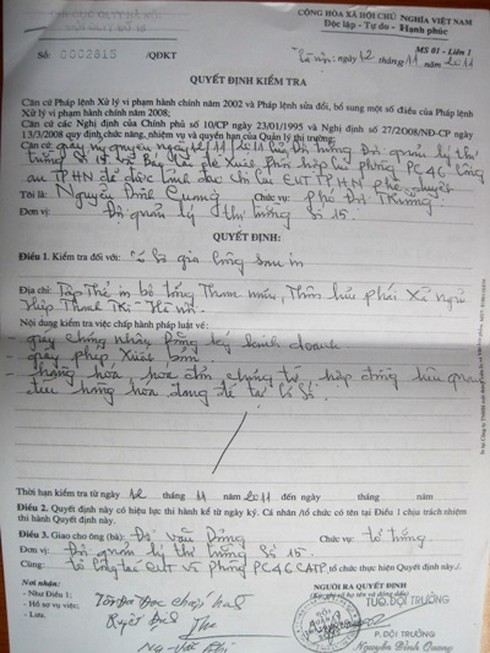 CHI CỤC QLTT HÀ NỘI
ĐỘI QLTT SỐ 15
CỘNG HÒA XÃ HỘI CHỦ NGHĨA VIỆT NAM
Độc lập - Tự do - Hạnh phúc
MS 01 - Liên 1
Số: 0002815 /QĐKT
Hà Nội, ngày 12 tháng 11 năm 2011
QUYẾT ĐỊNH KIỂM TRA
Căn cứ Pháp lệnh Xử lý vi phạm hành chính năm 2002 và Pháp lệnh sửa đổi, bổ sung một số điều của Pháp lệnh
Xử lý vi phạm hành chính năm 2008;
Căn cứ các Nghị định của Chính phủ số 10/CP ngày 23/01/1995 và Nghị định số 27/2008/NĐ-CP ngày
13/3/2008 quy định chức năng, nhiệm vụ và quyền hạn của Quản lý thị trường;
Căn cứ: giấy uỷ quyền ngày 12/11/2011 của Đội trưởng Đội quản lý thị
trường số 15 và đề xuất phối hợp của phòng PC46 công
an TP.HN đã được lãnh đạo chi cục QLTT.HN phê duyệt
Tôi là: Nguyễn Đình Quang Chức vụ: phó Đội Trưởng
Đơn vị: Đội quản lý thị trường số 15.
QUYẾT ĐỊNH:
Điều 1. Kiểm tra đối với: Cơ Sở gia công sau in
Địa chỉ: Tập Thể in bộ tổng Tham mưu, Thôn lưu phái Xã ngũ
Hiệp Thanh Trì - Hà Nội.
Nội dung kiểm tra việc chấp hành pháp luật về:
- giấy chứng nhận Đăng ký kinh doanh
- giấy phép Xuất bản
- hàng hóa, hóa đơn chứng từ, hợp đồng liên quan
đến hàng hóa đang để tại Cơ Sở.
Thời hạn kiểm tra từ ngày 12 tháng 11 năm 2011 đến ngày tháng năm
Điều 2. Quyết định này có hiệu lực thi hành kể từ ngày ký. Cá nhân /tổ chức có tên tại Điều 1 chịu trách nhiệm
thi hành Quyết định này.
Điều 3. Giao cho ông (bà): Đỗ văn Dũng Chức vụ: tổ trưởng
Đơn vị: Đội quản lý thị trường Số 15.
Cùng: tổ công tác QLTT và Phòng PC46.CATP, tổ chức thực hiện Quyết định này./.
Nơi nhận:
- Như Điều 1;
- Hồ sơ vụ việc;
- Lưu.
Quyết định
NGƯỜI RA QUYẾT ĐỊNH
(Ký, ghi rõ họ tên và đóng dấu)
TUQ. ĐỘI TRƯỞNG
P. ĐỘI TRƯỞNG
Nguyễn Đình Quang